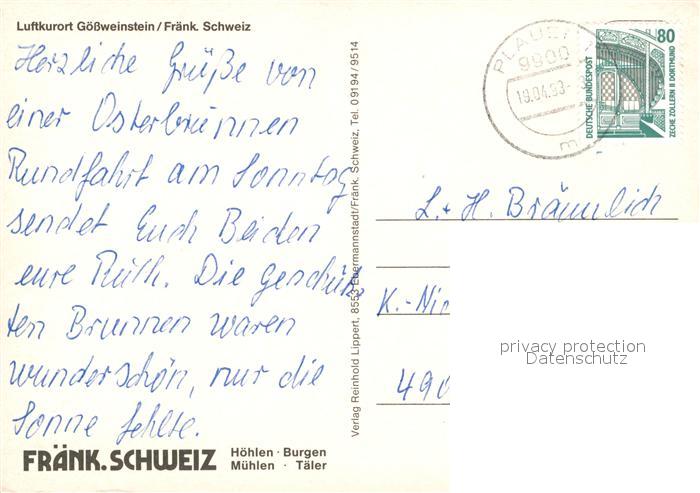 Luftkurort Gößweinstein / Fränk. Schweiz
Herzliche Grüße von
einer Osterbrunnen
Rundfahrt am Sonntag
sendet Euch Beiden
eure Ruth. Die geschük
ten Brunnen waren
wunderschön, nur die
Sonne fehlte.
FRÄNK. SCHWEIZ
Höhlen · Burgen
Mühlen · Täler
Verlag Reinhold Lippert, 8553 Ebermannstadt/Fränk. Schweiz, Tel. 09194/9514
PLAUEN
9900
19.04.93
m
DEUTSCHE BUNDESPOST
80
ZECHE ZOLLERN II DORTMUND
L. + H. Bräunlich
K.-Nie
490
privacy protection
Datenschutz